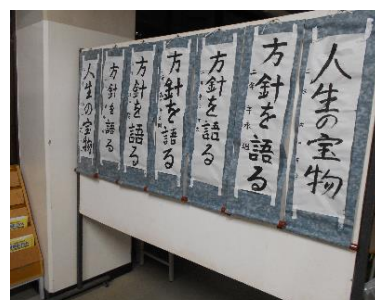 人生の宝物
方針を語る
方針を語る
方針を語る
方針を語る
方針を語る
人生の宝物